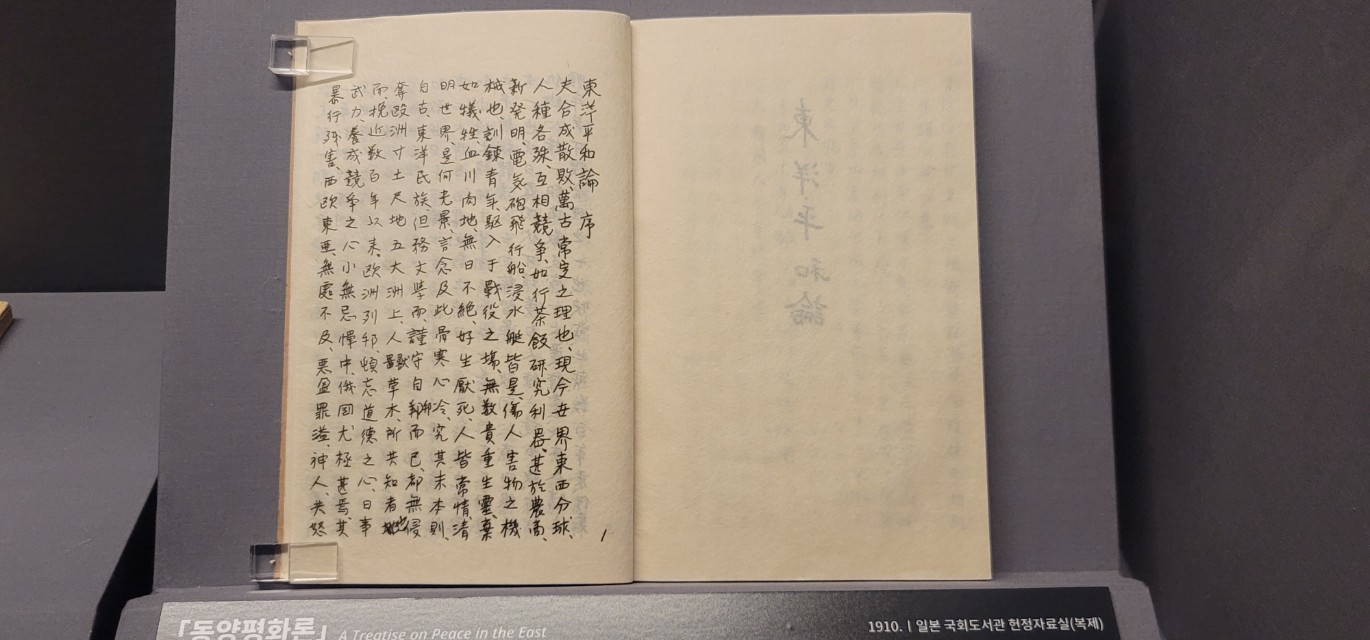 東洋平和論 序
夫合成散敗、萬古常定之理也、現今世界東西分球、
人種各殊、互相競爭、如行茶飯、研究利器、甚於農商、
新発明、電気砲飛行船、浸水艇皆是傷人害物之機
械也、訓鍊青年、駆入于戰役之場、無数貴重生靈、棄
如犧牲、血川肉地、無日不絶、好生厭死、人皆常情、清
明世界、是何光景、言念及此、骨寒心冷、究其末本則、
自古、東洋民族、但務文學而、謹守自邦而已、都無侵
奪欧洲寸土尺地、五大洲上、人獸草木、所共知者也
而挽近数百年以来、欧洲列邦、頓忘道徳之心、日事
武力、養成競争之心、小無忌憚、中、俄国尤極甚焉、其
暴行殘害、西欧東亜、無處不及、悪盈罪溢、神人共怒
1
東洋平和論
「동양평화론」 A Treatise on Peace in the East
1910.ㅣ일본 국회도서관 헌정자료실(복제)